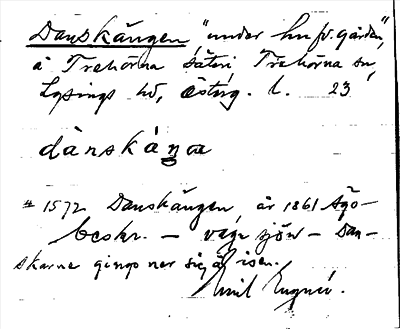 Danskängen "under hufv.gården"
å Trehörna säteri Trehörna sn,
Lysings hd, Östrg. l. 23
dànskáŋa
# 1572 Danskängen, år 1861 Ägo-
beskr. — väge sjön — Dan-
skarne gingo ner sig å isen.
Emil Eugnér.